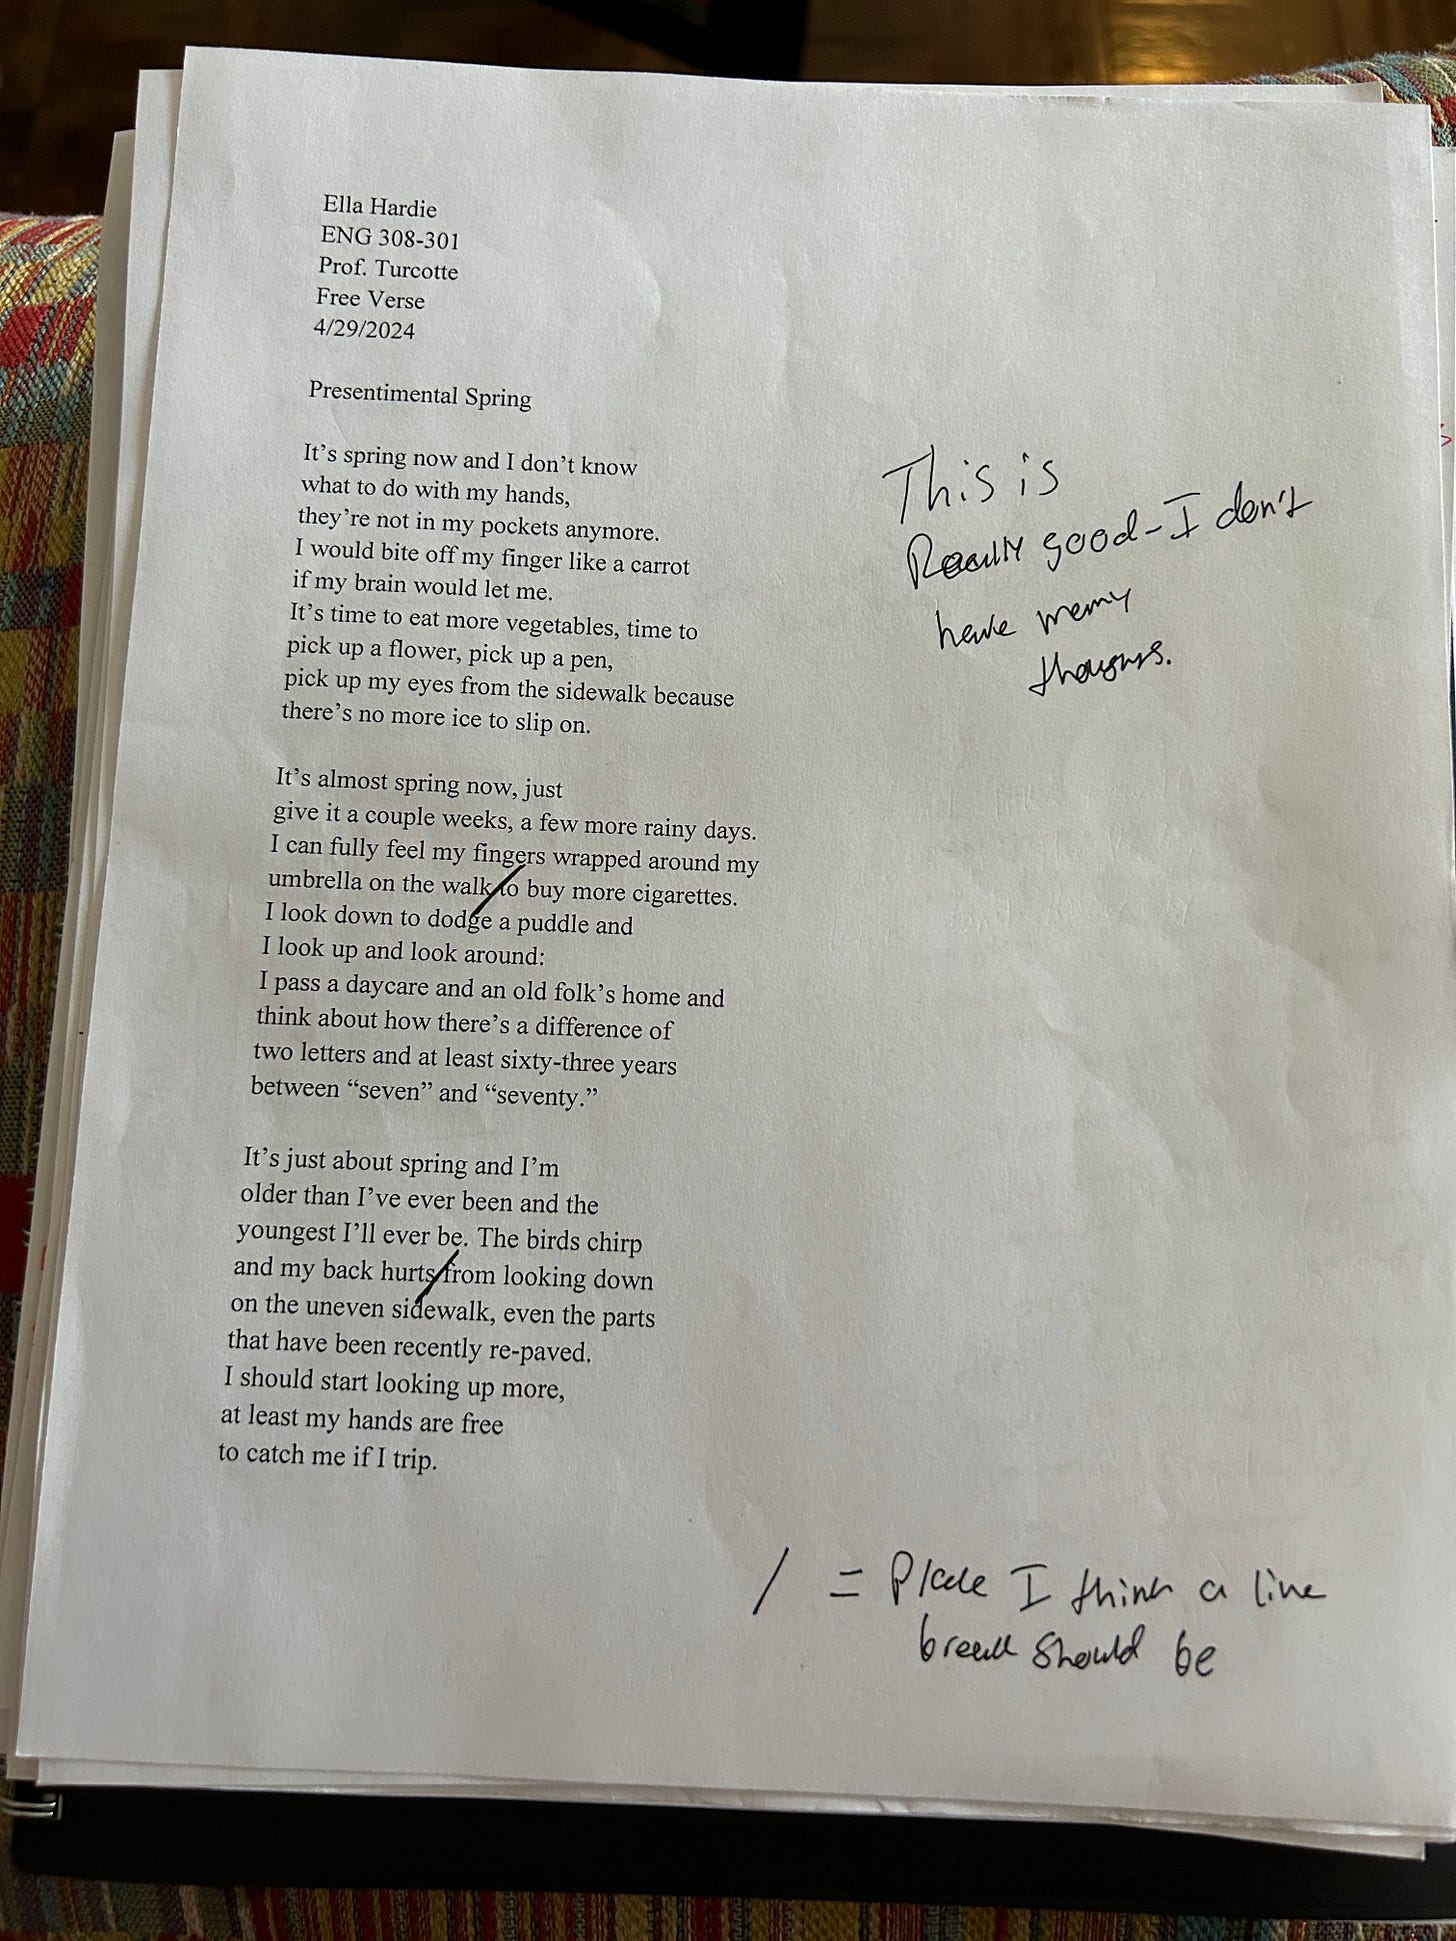 Ella Hardie
ENG 308-301
Prof. Turcotte
Free Verse
4/29/2024
Presentimental Spring
It's spring now and I don't know
what to do with my hands,
they're not in my pockets anymore.
I would bite off my finger like a carrot
if my brain would let me.
It's time to eat more vegetables, time to
pick up a flower, pick up a pen,
pick up my eyes from the sidewalk because
there's no more ice to slip on.
This is
Really good - I don't
have many
thoughts.
It's almost spring now, just
give it a couple weeks, a few more rainy days.
I can fully feel my fingers wrapped around my
umbrella on the walk / to buy more cigarettes.
I look down to dodge a puddle and
I look up and look around:
I pass a daycare and an old folk's home and
think about how there's a difference of
two letters and at least sixty-three years
between “seven” and “seventy.”
It's just about spring and I'm
older than I've ever been and the
youngest I'll ever be. The birds chirp
and my back hurts / from looking down
on the uneven sidewalk, even the parts
that have been recently re-paved.
I should start looking up more,
at least my hands are free
to catch me if I trip.
/ = Place I think a line
break should be